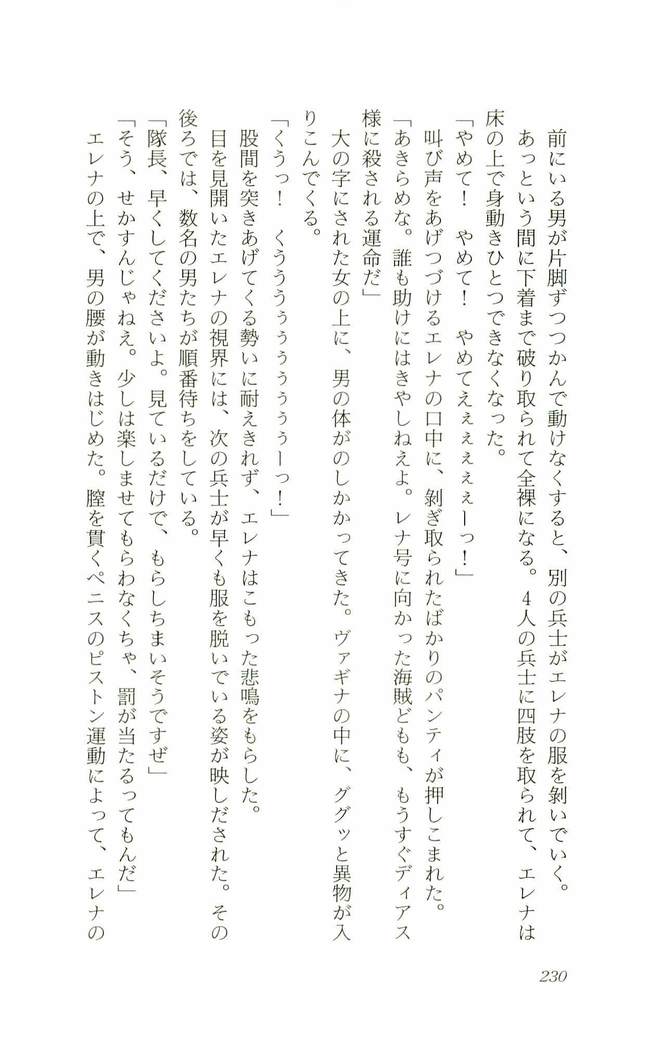 前にいる男が片脚ずつつかんで動けなくすると、別の兵士がエレナの服を剝いでいく。
あっという間に下着まで破り取られて全裸になる。4人の兵士に四肢を取られて、エレナは
床の上で身動きひとつできなくなった。
「やめて! やめて! やめてえぇぇぇぇぇーっ!」
叫び声をあげつづけるエレナの口中に、剝ぎ取られたばかりのパンティが押しこまれた。
「あきらめな。誰も助けにはきやしねえよ。レナ号に向かった海賊どもも、もうすぐディアス
様に殺される運命だ」
大の字にされた女の上に、男の体がのしかかってきた。ヴァギナの中に、ググッと異物が入
りこんでくる。
「くうっ! くううううぅぅぅぅぅぅーっ!」
股間を突きあげてくる勢いに耐えきれず、エレナはこもった悲鳴をもらした。
目を見開いたエレナの視界には、次の兵士が早くも服を脱いでいる姿が映しだされた。その
後ろでは、数名の男たちが順番待ちをしている。
「隊長、早くしてくださいよ。見ているだけで、もらしちまいそうですぜ」
「そう、せかすんじゃねえ。少しは楽しませてもらわなくちゃ、罰が当たるってもんだ」
エレナの上で、男の腰が動きはじめた。膣を貫くペニスのピストン運動によって、エレナの
230